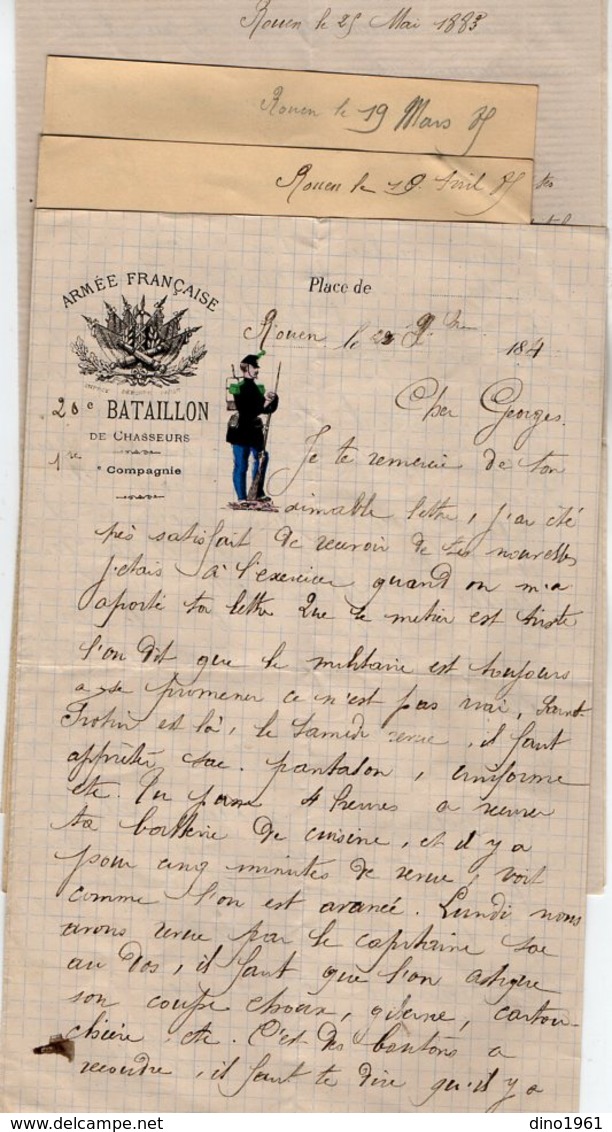 Rouen le 25 Mai 1883
Rouen le 19 Mars 85
Rouen le 18 Avril 85
ARMÉE FRANÇAISE
Place de
Rouen le 28 9bre 1884
20e BATAILLON
DE CHASSEURS
1re Compagnie
Cher Georges.
Je te remercie de ton
aimable lettre, j'ai été
très satisfait de recevoir de tes nouvelles
j'etais à l'exercice quand on m'a
aporté ta lettre Que le metier est triste
l'on dit que le militaire est toujours
a se promener ce n'est pas vrai, Saint-
Frotin est là, le samedi revue, il faut
apprêter sac, pantalon, uniforme
etc. Tu passe 4 heures a recurer
ta batterie de cuisine, et il y a
pour cinq minutes de revue, voit
comme l'on est avancé. Lundi nous
avons revue par le capitaine sac
au dos, il faut que l'on astique
son coupe choux, giberne, cartou-
chière, etc. C'est des boutons a
recoudre, il faut te dire qu'il y a
dino1961